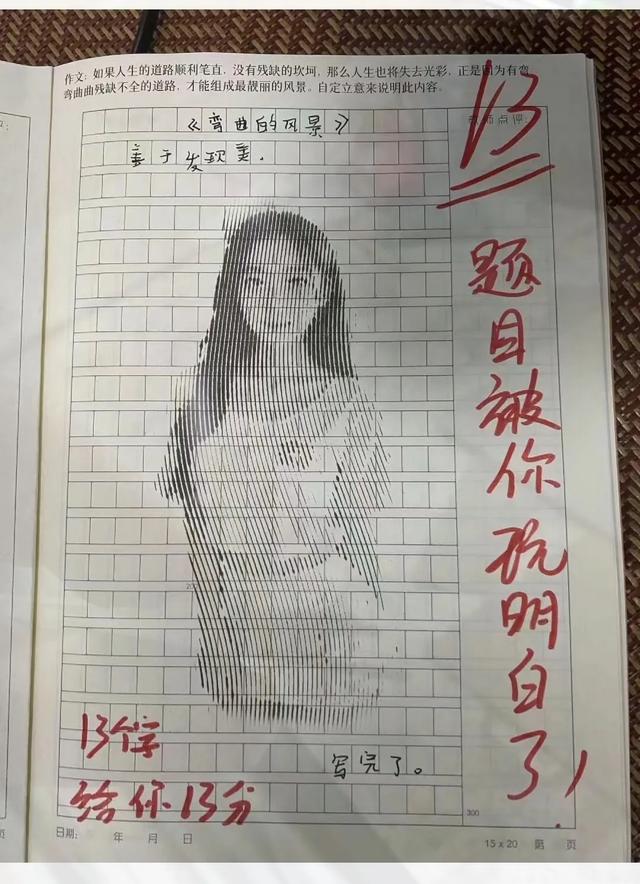 作文：如果人生的道路顺利笔直，没有残缺的坎坷，那么人生也将失去光彩，正是因为有弯
弯曲曲残缺不全的道路，才能组成最靓丽的风景。自定立意来说明此内容。
教师点评：
13
《弯曲的风景》
善于发现美.
题目被你玩明白了！
200
13个字
给你13分
写完了。
300
日期： 年 月 日
15×20 第 页